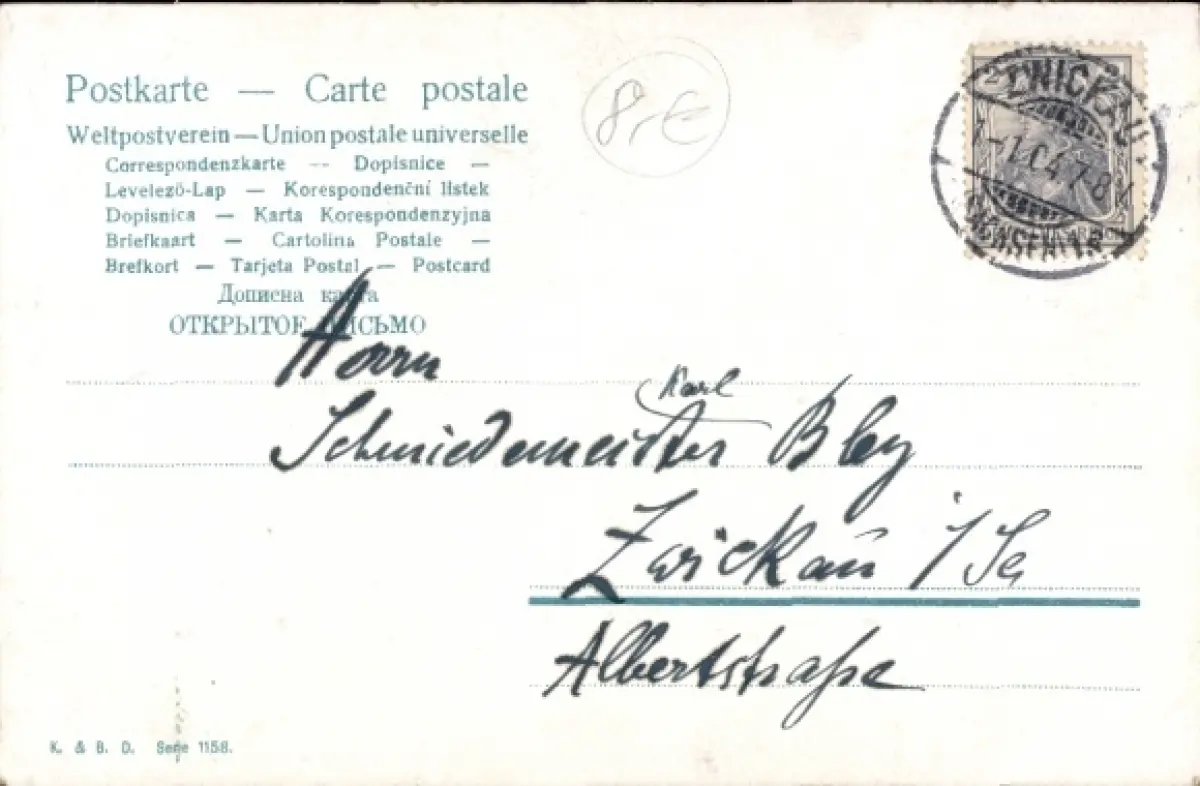 Postkarte — Carte postale
Weltpostverein — Union postale universelle
Correspondenzkarte — Dopisnice —
Levelező-Lap — Korespondenční lístek
Dopisnica — Karta Korespondenzyjna
Briefkaart — Cartolina Postale —
Brefkort — Tarjeta Postal — Postcard
Дописна карта
ОТКРЫТОЕ ПИСЬМО
8,-€
ZWICKAU
1.04.7-8
(SACHSEN) 1
2 2
Herrn
Karl
Schmiedemeister Bley
Zwickau i/Sa
Albertstraße
K. & B. D. Serie 1158.